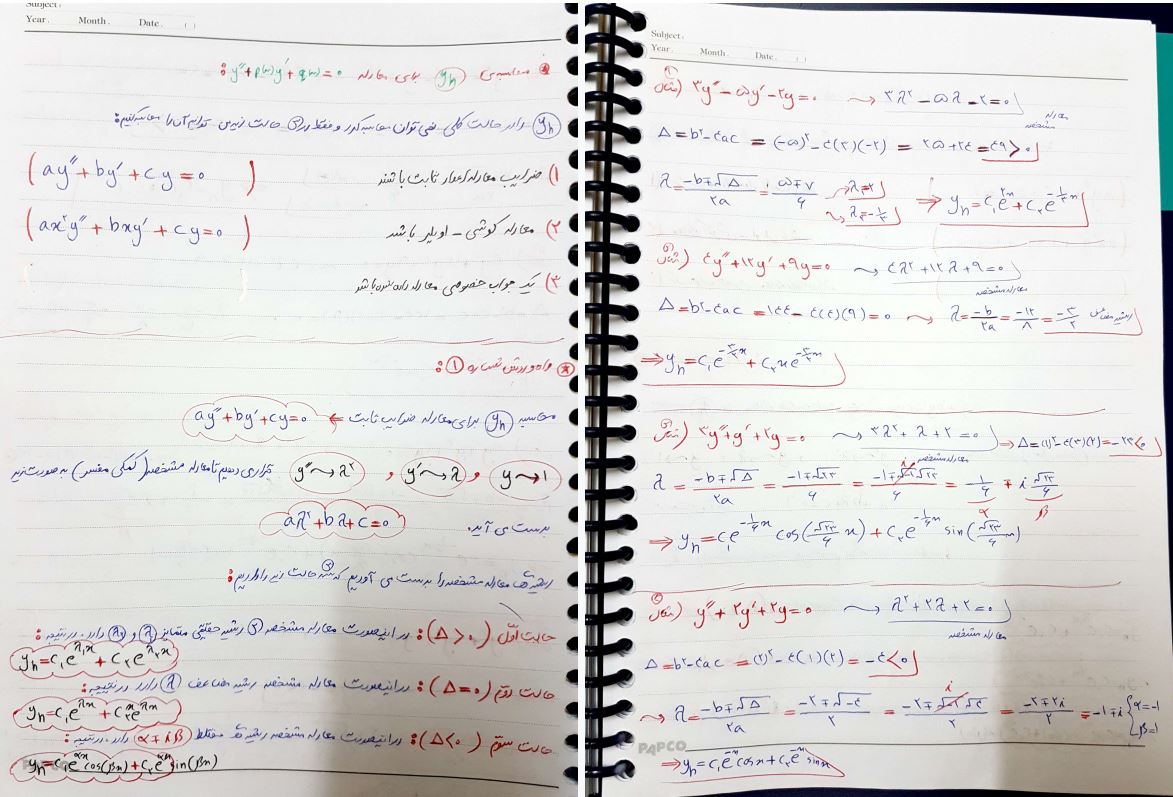 Subject:
Year. Month. Date. ( )
* محاسبه‌ی yₕ برای معادله y″+p(x)y′+q(x)=۰ :
yₕ را در حالت کلی نمی‌توان محاسبه کرد و فقط در ۳ حالت زیر می‌توانیم آن را محاسبه کنیم:
۱) ضرایب معادله اعداد ثابت باشند (ay″+by′+cy=۰)
۲) معادله کوشی – اویلر باشد (ax²y″+bxy′+cy=۰)
۳) یک جواب خصوصی معادله داده شده باشد ( )
* شماره ۱ :
محاسبه yₕ برای معادله ضرایب ثابت ← ay″+by′+cy=۰
y⇝۱ , y′⇝λ , y″⇝λ² قرار می‌دهیم تا معادله مشخصه (کمکی مفسر) به صورت زیر
بدست می‌آید. aλ²+bλ+c=۰
ریشه‌های معادله مشخصه را بدست می‌آوریم که ۳ حالت زیر را داریم:
حالت اول (Δ>۰): در اینصورت معادله مشخصه ۲ ریشه حقیقی متمایز λ₁ و λ₂ دارد. در نتیجه:
yₕ=c₁e^{λ₁x}+c₂e^{λ₂x}
حالت دوم (Δ=۰): در اینصورت معادله مشخصه ریشه مضاعف λ دارد. در نتیجه:
yₕ=c₁e^{λx}+c₂xe^{λx}
حالت سوم (Δ<۰): در اینصورت معادله مشخصه ریشه‌های مختلط α∓iβ دارد. در نتیجه:
yₕ=c₁e^{αx}cos(βx)+c₂e^{αx}sin(βx)
PAPCO
Subject:
Year. Month. Date. ( )
مثال۱) ۳y″−۵y′−۲y=۰ ⇝ ۳λ²−۵λ−۲=۰
معادله مشخصه
Δ=b²−۴ac=(−۵)²−۴(۳)(−۲)=۲۵+۲۴=۴۹>۰
λ=(−b∓√Δ)/۲a=(۵∓۷)/۶ ⇝ λ₁=۲ ⇝ λ₂=−۱/۳ ⇒ yₕ=c₁e^{۲x}+c₂e^{−۱/۳x}
مثال) ۴y″+۱۲y′+۹y=۰ ⇝ ۴λ²+۱۲λ+۹=۰
معادله مشخصه
Δ=b²−۴ac=۱۴۴−۴(۴)(۹)=۰ ⇝ λ=−b/۲a=−۱۲/۸=−۳/۲ ریشه مضاعف
⇒yₕ=c₁e^{−۳/۲x}+c₂xe^{−۳/۲x}
مثال) ۳y″+y′+۲y=۰ ⇝ ۳λ²+λ+۲=۰ ⇒ Δ=(۱)²−۴(۳)(۲)=−۲۳<۰
معادله مشخصه
λ=(−b∓√Δ)/۲a=(−۱∓√−۲۳)/۶=(−۱∓√−۱√۲۳)/۶=−۱/۶∓i√۲۳/۶
i α β
⇒yₕ=c₁e^{−۱/۶x}cos(√۲۳/۶ x)+c₂e^{−۱/۶x}sin(√۲۳/۶ x)
مثال) y″+۲y′+۲y=۰ ⇝ λ²+۲λ+۲=۰
معادله مشخصه
Δ=b²−۴ac=(۲)²−۴(۱)(۲)=−۴<۰
⇝ λ=(−b∓√Δ)/۲a=(−۲∓√−۴)/۲=(−۲∓√−۱√۴)/۲=(−۲∓۲i)/۲=−۱∓i {α=−۱ β=۱
i
PAPCO
⇒yₕ=c₁e^{−x}cosx+c₂e^{−x}sinx